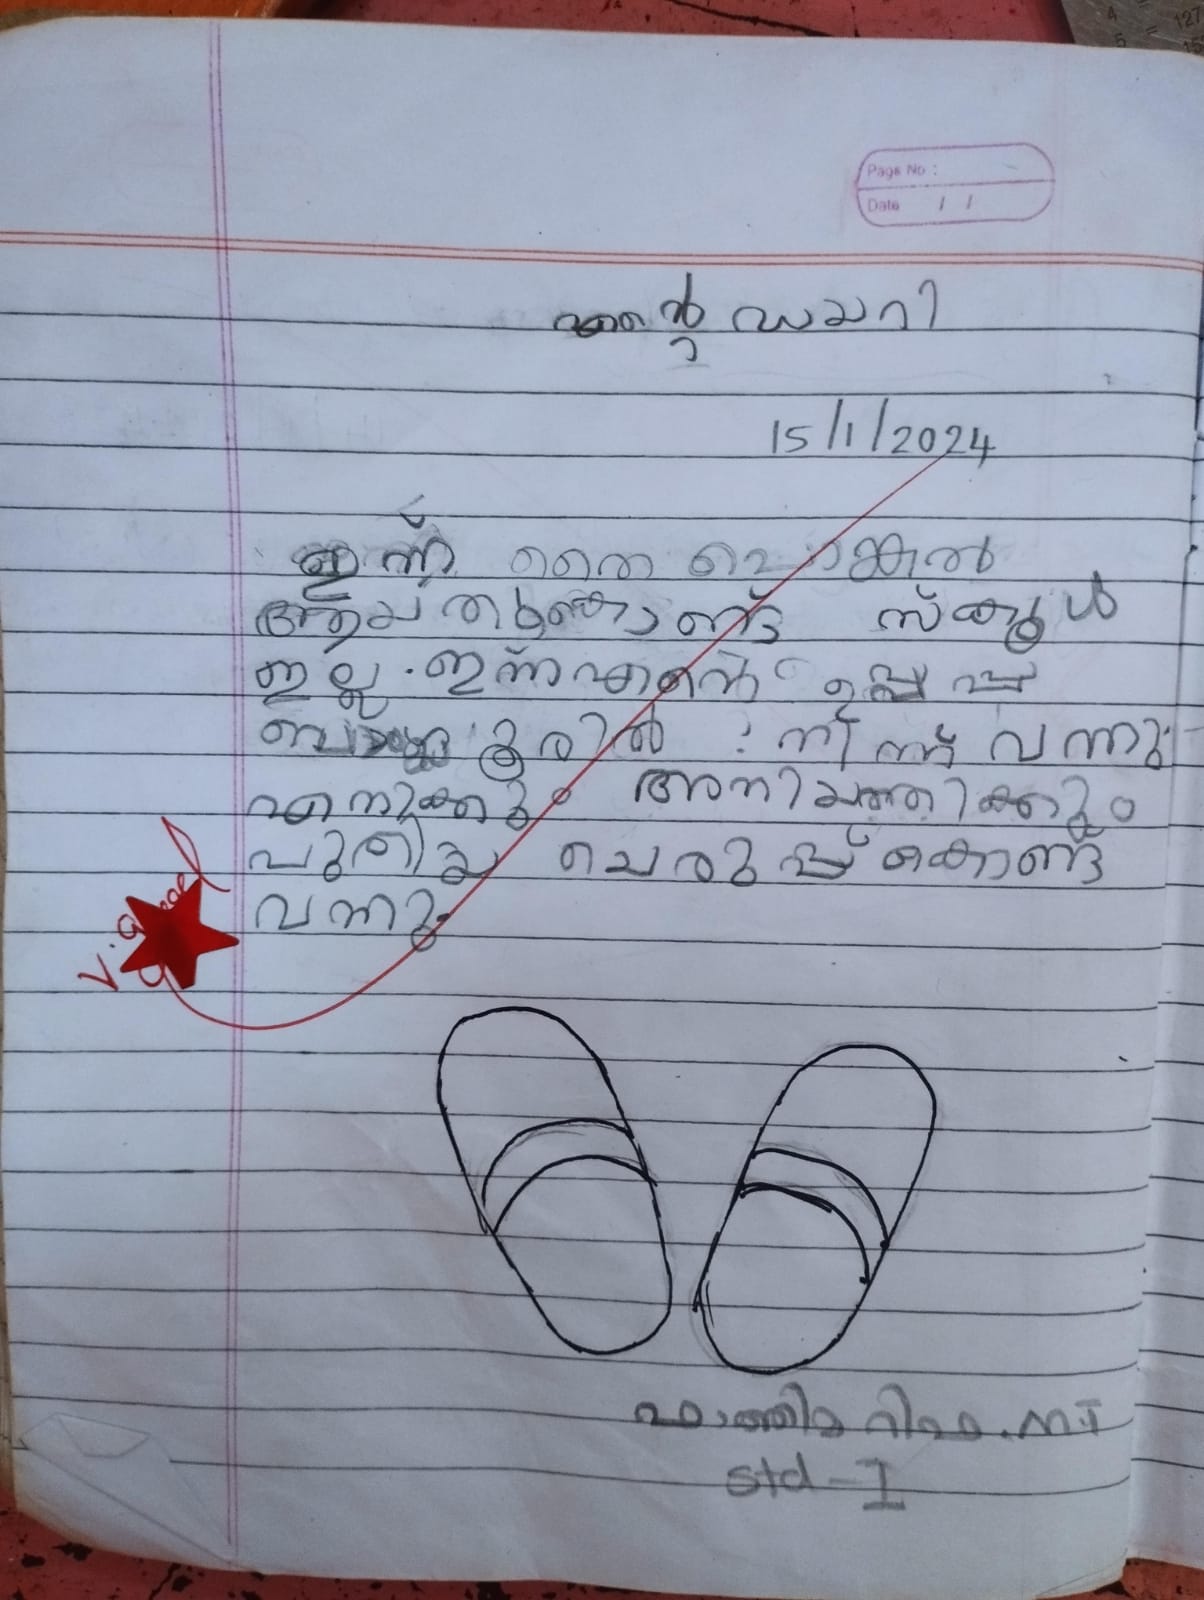 Page No :
Date / /
എന്റെ ഡയറി
15/1/2024
ഇന്ന് തൈ പൊങ്കൽ
ആയതുകൊണ്ട് സ്കൂൾ
ഇല്ല. ഇന്ന് എന്റെ ഉപ്പച്ചി
ബാംഗ്ലൂരിൽ നിന്ന് വന്നു.
എനിക്കും അനിയത്തിക്കും
പുതിയ ചെരുപ്പ് കൊണ്ട്
വന്നു.
V. Good
ഫാത്തിമ റിഫ. M.T
Std - I